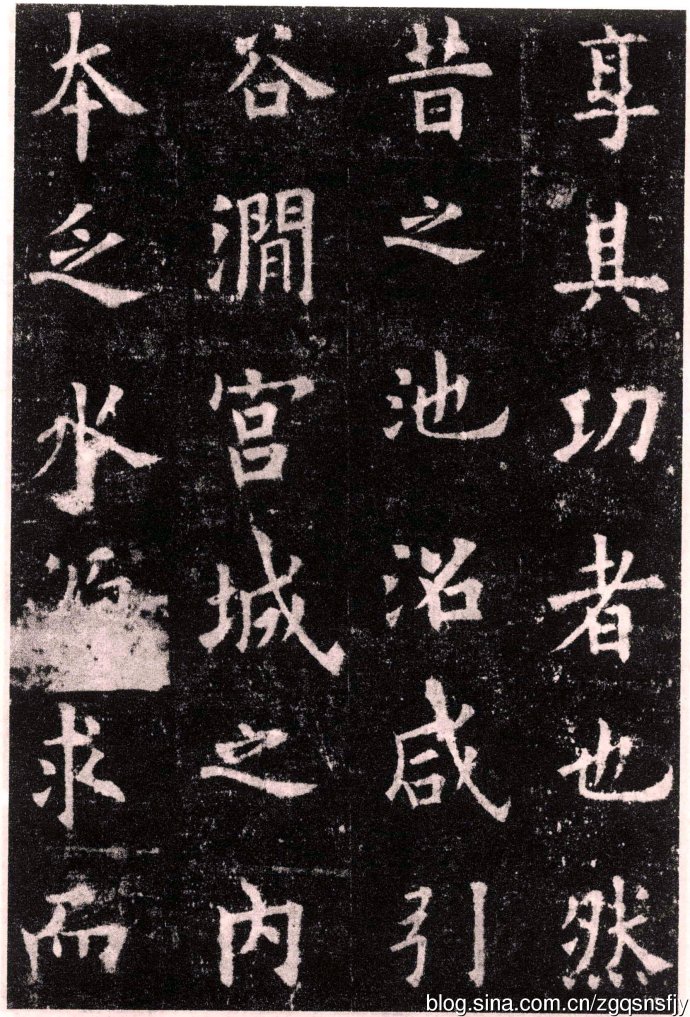 享其功者也然
昔之池沼咸引
谷澗宮城之內
本乏水求而
blog.sina.com.cn/zgqsnsfjy